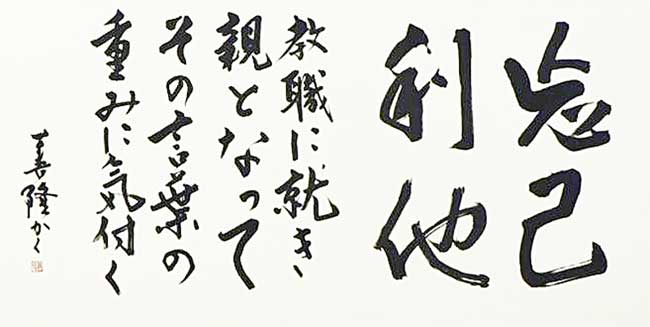 忘己
利他
教職に就き
親となって
その言葉の
重みに気付く
喜隆かく